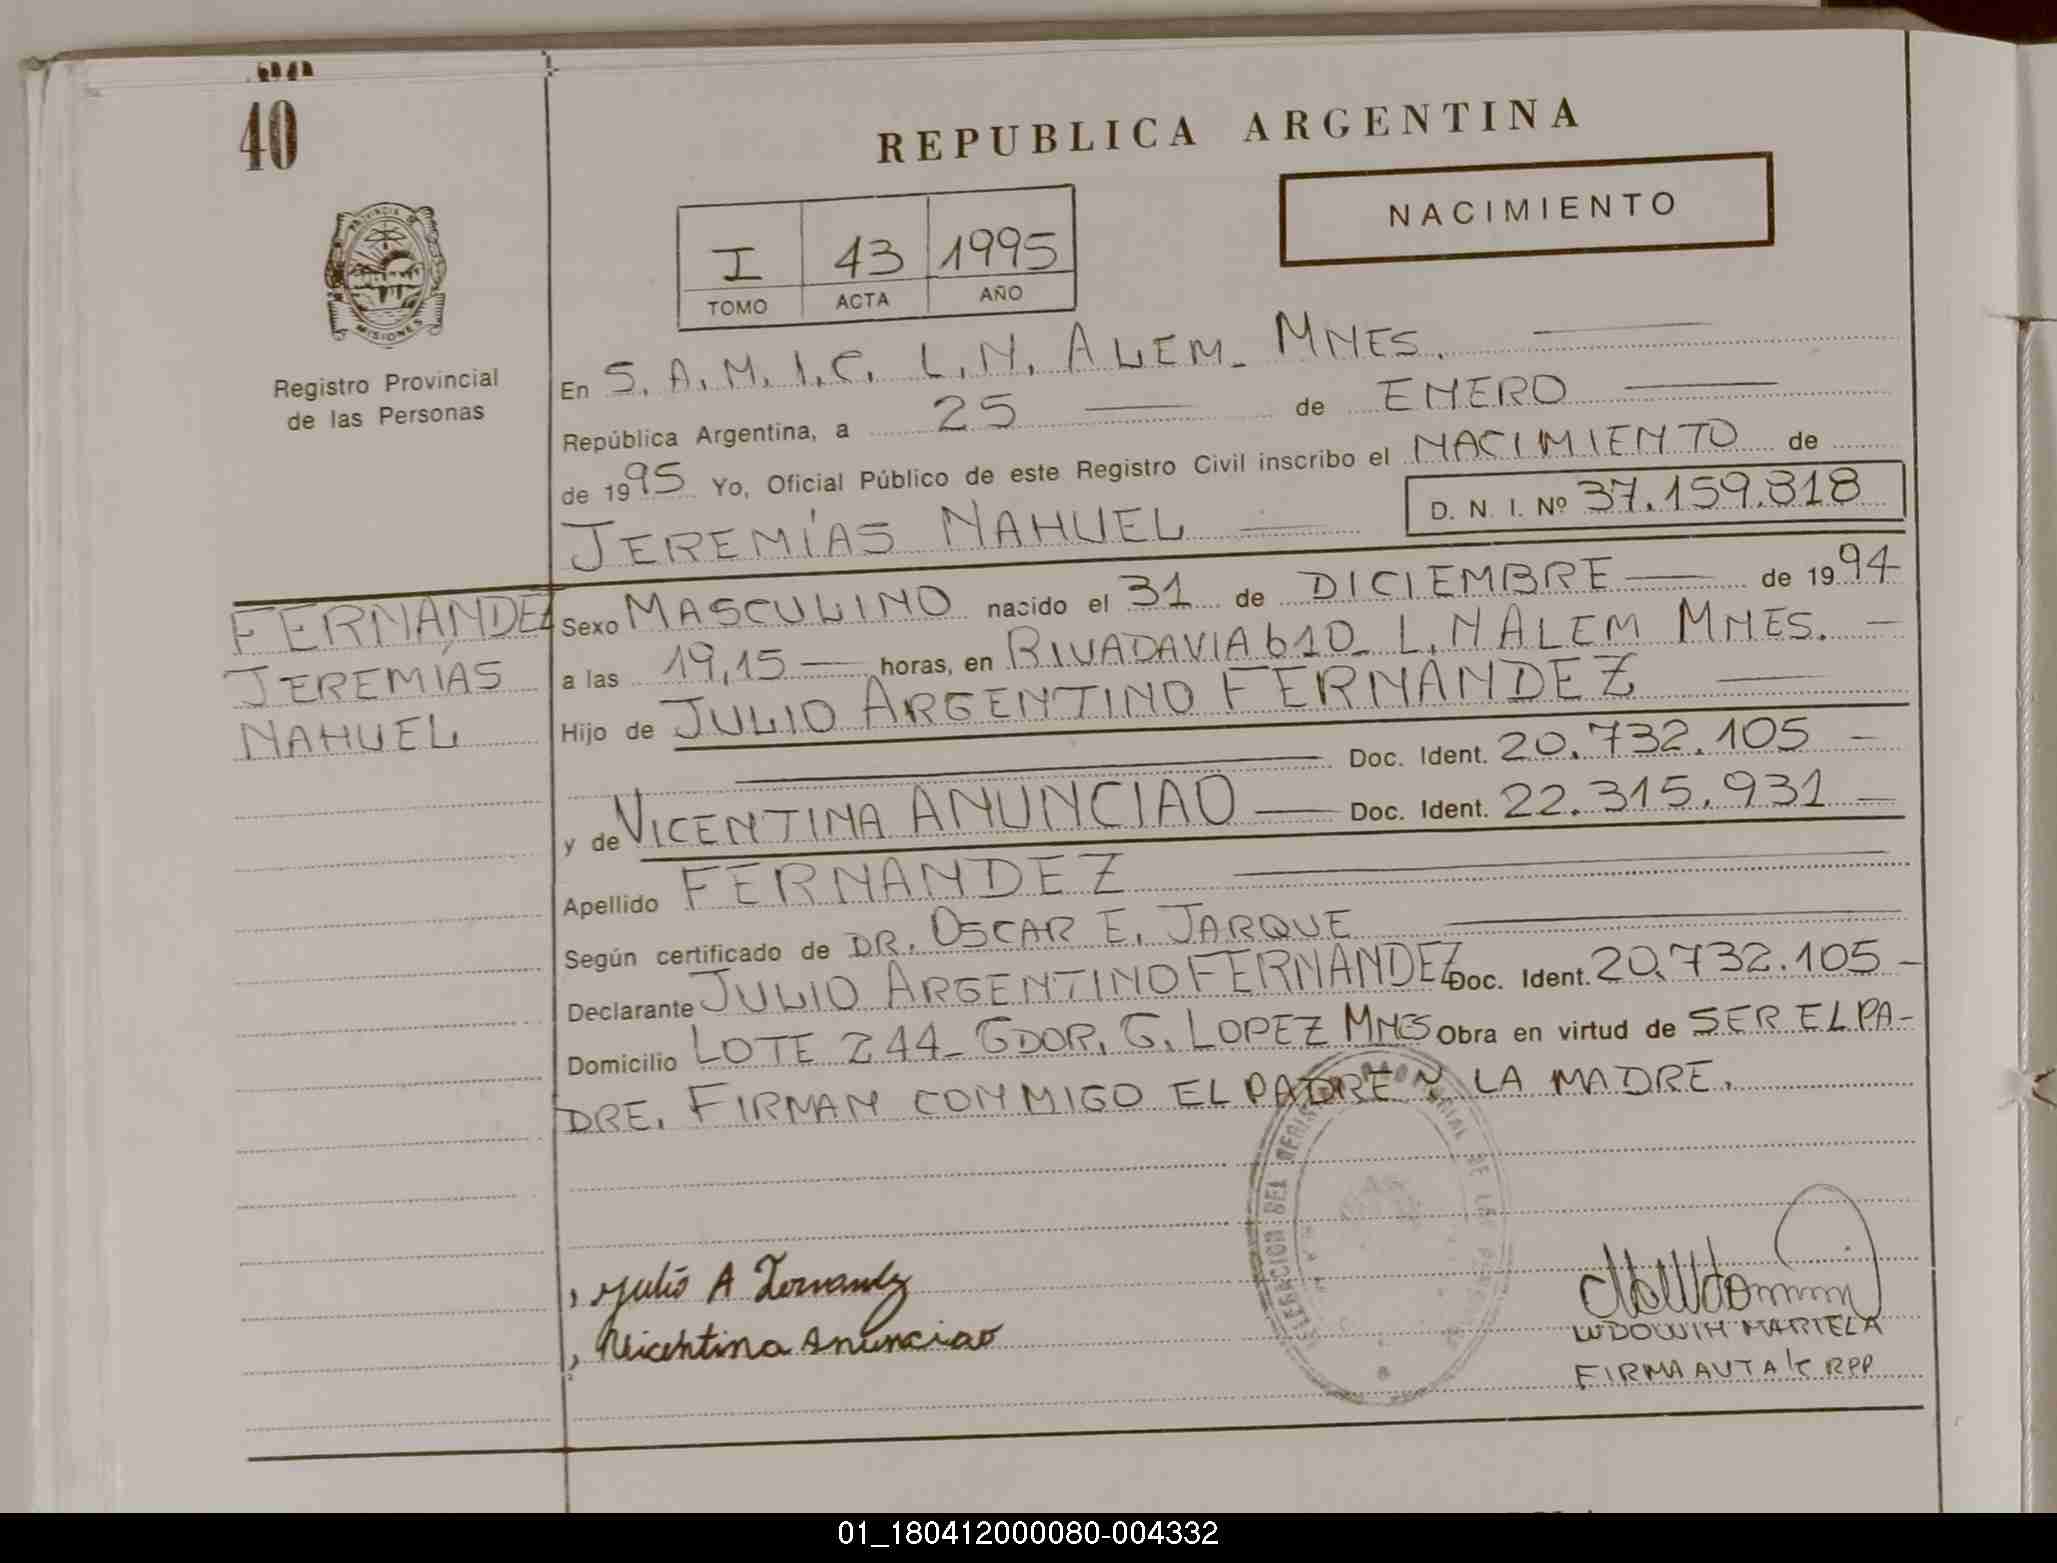 40
REPUBLICA ARGENTINA
NACIMIENTO
I 43 1995
TOMO ACTA AÑO
PROVINCIA DE
MISIONES
Registro Provincial
de las Personas
En S.A.M.I.C. L.N. ALEM - MNES.
República Argentina, a 25 de ENERO
de 1995 Yo, Oficial Público de este Registro Civil inscribo el NACIMIENTO de
JEREMÍAS NAHUEL D. N. I. Nº 37.159.818
FERNÁNDEZ
JEREMÍAS
NAHUEL
Sexo MASCULINO nacido el 31 de DICIEMBRE de 1994
a las 19,15 horas, en RIVADAVIA 610 - L.N ALEM MNES.
Hijo de JULIO ARGENTINO FERNÁNDEZ
Doc. Ident. 20.732.105
y de VICENTINA ANUNCIAO Doc. Ident. 22.315.931
Apellido FERNANDEZ
Según certificado de DR. OSCAR E. JARQUE
Declarante JULIO ARGENTINO FERNANDEZ Doc. Ident. 20.732.105
Domicilio LOTE 244 - GDOR. G. LOPEZ MNES Obra en virtud de SER EL PA-
DRE. FIRMAN CONMIGO EL PADRE Y LA MADRE.
Julio A Fernandez
Vicentina Anunciao
FIRMA AUTA
RPP
01_180412000080-004332